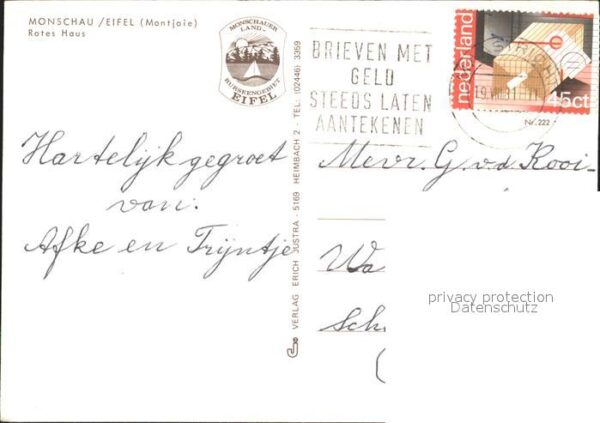 MONSCHAU /EIFEL (Montjoie)
Rotes Haus
MONSCHAUER
LAND-
RURSEENGEBIET
EIFEL
BRIEVEN MET
GELD
STEEDS LATEN
AANTEKENEN
nederland
45ct
Nr. 222
Hartelijk gegroet
van:
Afke en Trijntje
VERLAG ERICH JUSTRA - 5169 HEIMBACH 2 - TEL. (02446) 3359
Mevr. G. v.d. Kooi-
Wa
Sch
(
privacy protection
Datenschutz